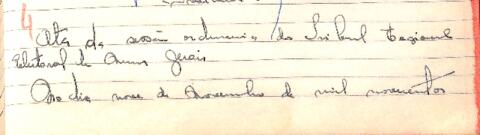 4
Ata da sessão ordinaria do Tribunal Regional
Eleitoral de Minas Gerais
Ao dia nove de Novembro de mil novecentos